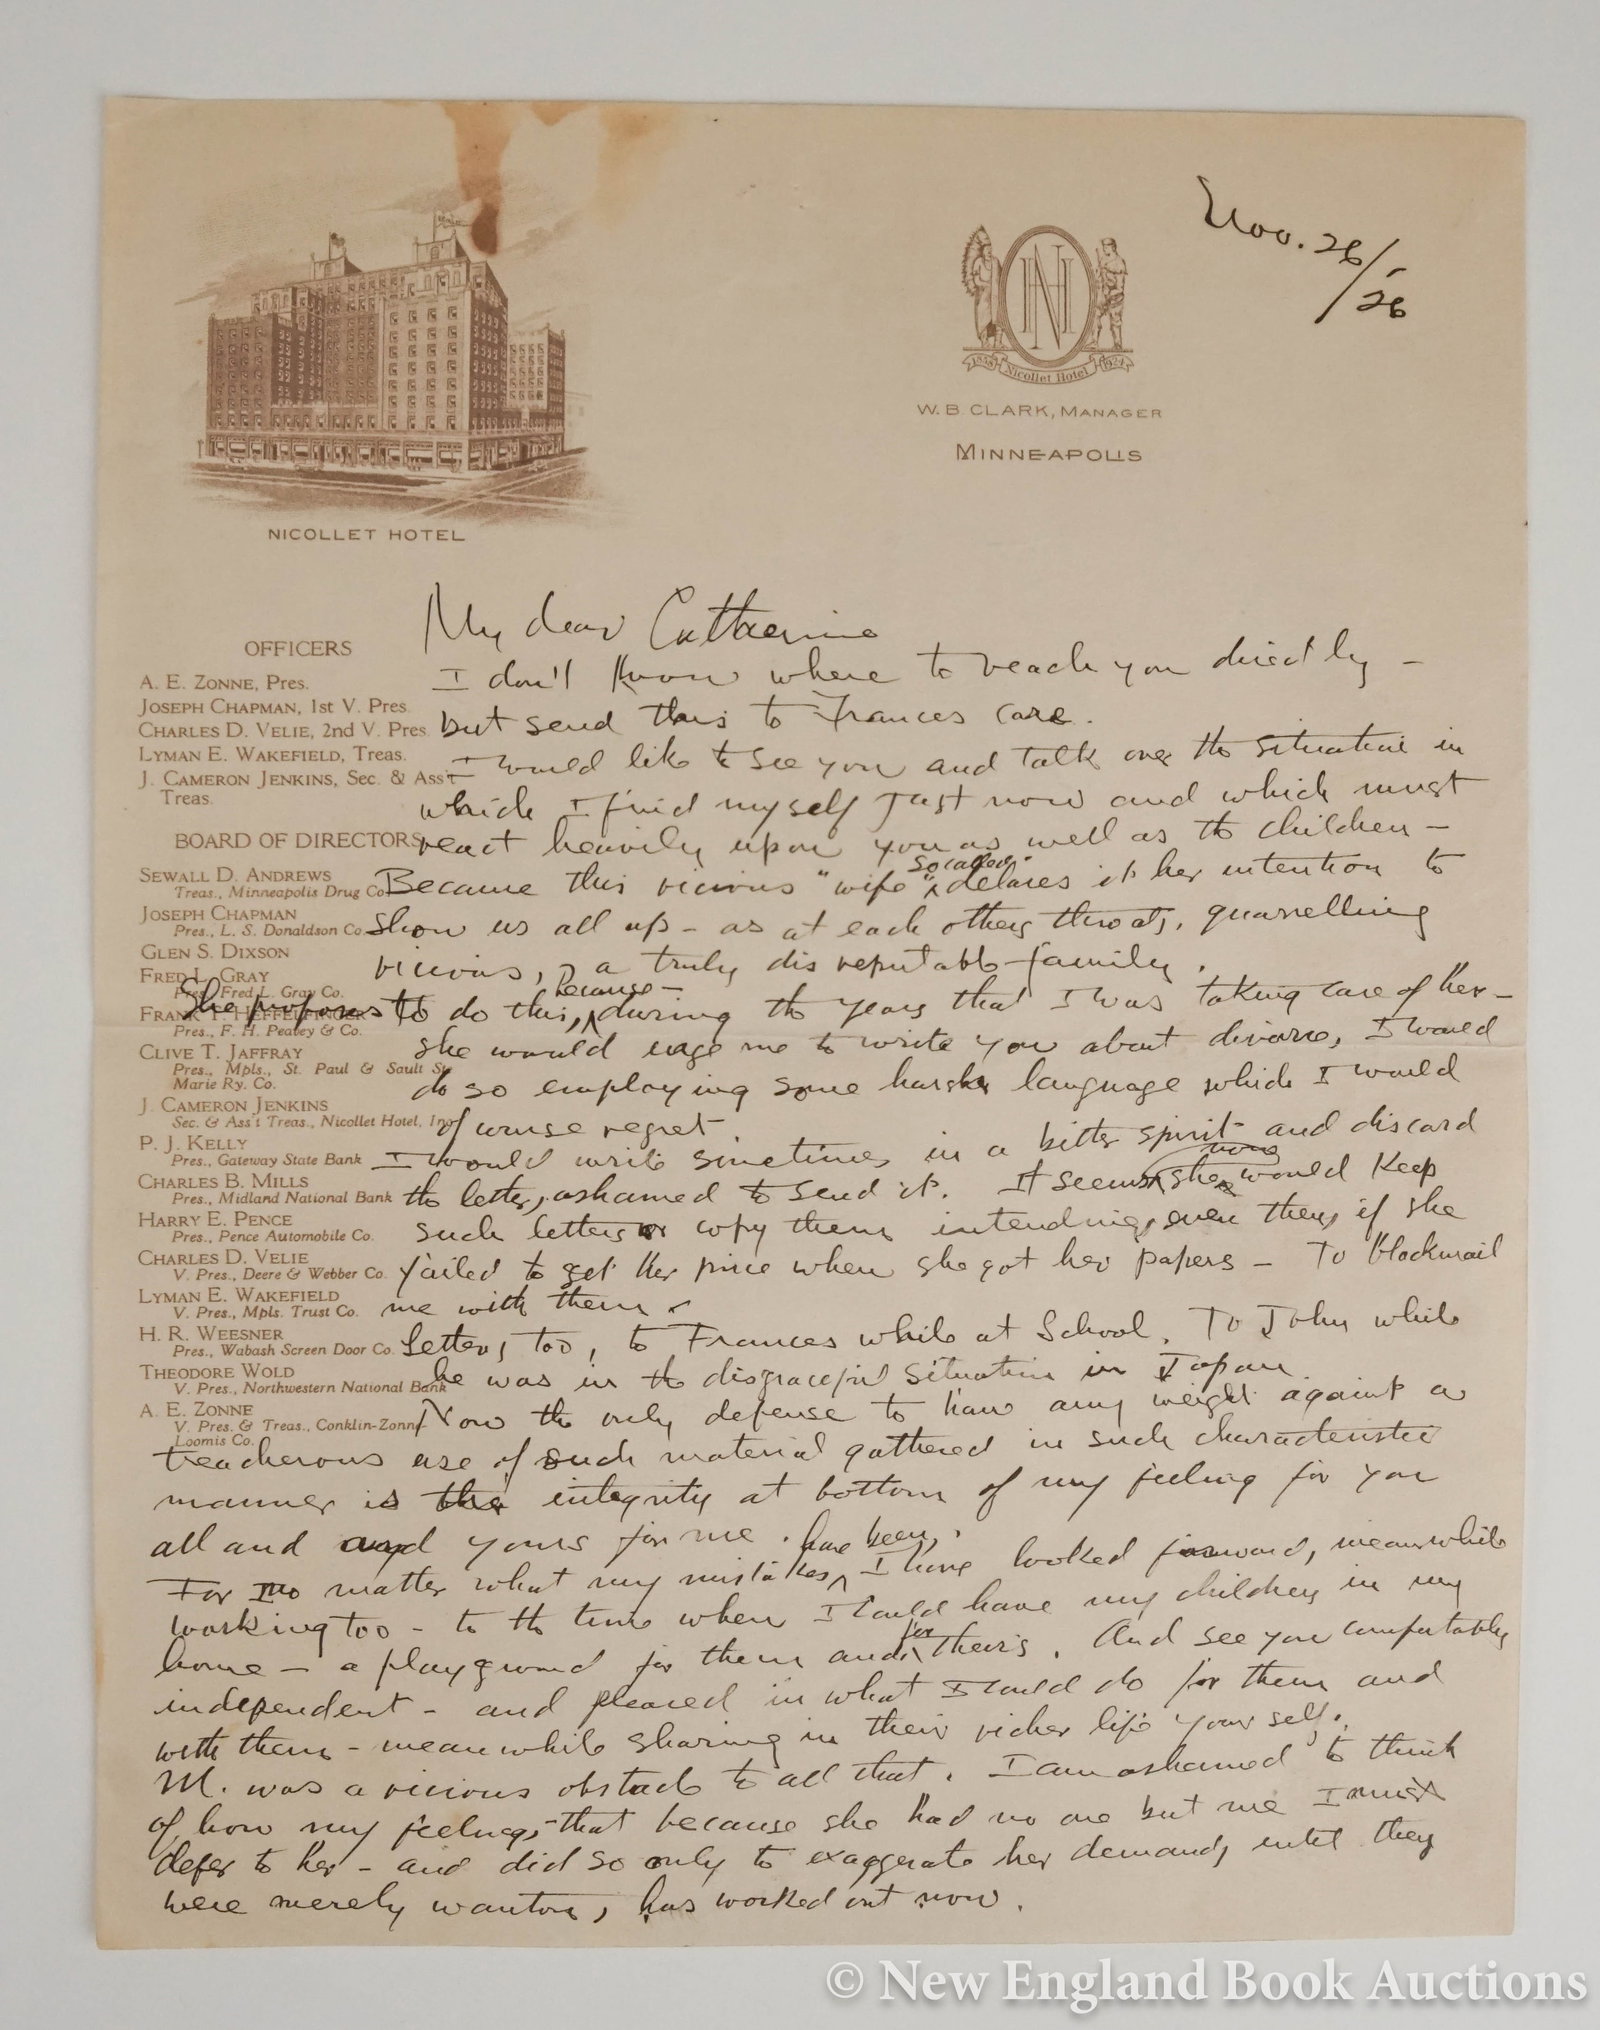 Nov. 26/
'26
1848 Nicollet Hotel 1924
W. B. CLARK, MANAGER
MINNEAPOLIS
NICOLLET HOTEL
OFFICERS
A. E. ZONNE, Pres.
JOSEPH CHAPMAN, 1st V. Pres.
CHARLES D. VELIE, 2nd V. Pres.
LYMAN E. WAKEFIELD, Treas.
J. CAMERON JENKINS, Sec. & Ass't
Treas.
BOARD OF DIRECTORS
SEWALL D. ANDREWS
Treas., Minneapolis Drug Co.
JOSEPH CHAPMAN
Pres., L. S. Donaldson Co.
GLEN S. DIXSON
FRED L. GRAY
Pres., Fred L. Gray Co.
FRANK T. HEFFELFINGER
Pres., F. H. Peavey & Co.
CLIVE T. JAFFRAY
Pres., Mpls., St. Paul & Sault St.
Marie Ry. Co.
J. CAMERON JENKINS
Sec. & Ass't Treas., Nicollet Hotel, Inc.
P. J. KELLY
Pres., Gateway State Bank
CHARLES B. MILLS
Pres., Midland National Bank
HARRY E. PENCE
Pres., Pence Automobile Co.
CHARLES D. VELIE
V. Pres., Deere & Webber Co.
LYMAN E. WAKEFIELD
V. Pres., Mpls. Trust Co.
H. R. WEESNER
Pres., Wabash Screen Door Co.
THEODORE WOLD
V. Pres., Northwestern National Bank
A. E. ZONNE
V. Pres. & Treas., Conklin-Zonne
Loomis Co.
My dear Catherine
I don't know where to reach you directly –
but send this to Frances care.
I would like to see you and talk over the situation in
which I find myself just now and which must
react heavily upon you as well as the children –
Because this vicious "wife" so called – declares it her intention to
show us all up – as at each others throats, quarrelling
vicious, a truly disreputable family.
She proposes to do this, because – during the years that I was taking care of her –
she would urge me to write you about divorce, I would
do so employing some harsh language which I would
of course regret.
I would write sometimes in a bitter spirit and discard
the letter, ashamed to send it. It seems now she would keep
such letters or copy them intending, even then, if she
failed to get her price when she got her papers – To blackmail
me with them.
Letters, too, to Frances while at School. To John while
he was in the disgraceful situation in Japan.
Now the only defense to have any weight against a
treacherous use of such material gathered in such characteristic
manner is the integrity at bottom of my feeling for you
all and and yours for me.
For no matter what my mistakes have been, I have looked forward, meanwhile
working too – to the time when I could have my children in my
home – a playground for them and for theirs. And see you comfortably
independent – and pleased in what I could do for them and
with them – meanwhile sharing in their richer life yourself.
M. was a vicious obstacle to all that. I am ashamed to think
of how my feeling, that because she had no one but me I must
defer to her – and did so only to exaggerate her demands until they
were merely wanton, has worked out now.
© New England Book Auctions